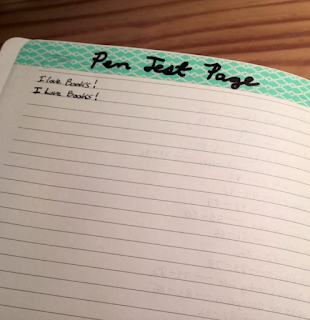 Pen Test Page
I love Books!
I Love Books!